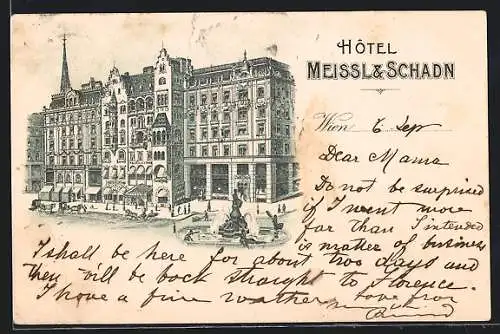 HÔTEL
MEISSL & SCHADN
Wien 6 Sep
Dear Mama
Do not be surprised
if I went more
far than I intended
is matter of business
I shall be here for about two days and
then will be back straight to Florence.
I have a fine weather love from